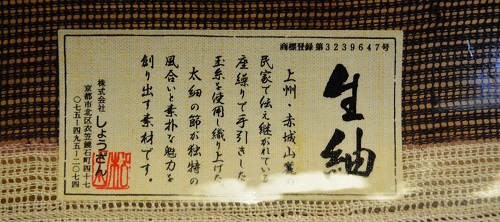 商標登録 第3239647号
生紬
上州・赤城山麓の
民家で伝え継がれている
座繰りで手引きした
玉糸を使用し織り上げた
太細の節が独特の
風合いと素朴な魅力を
創り出す素材です。
株式会社 しょうざん
京都市北区衣笠鏡石町四十七
〇七五-四九五-二〇七四